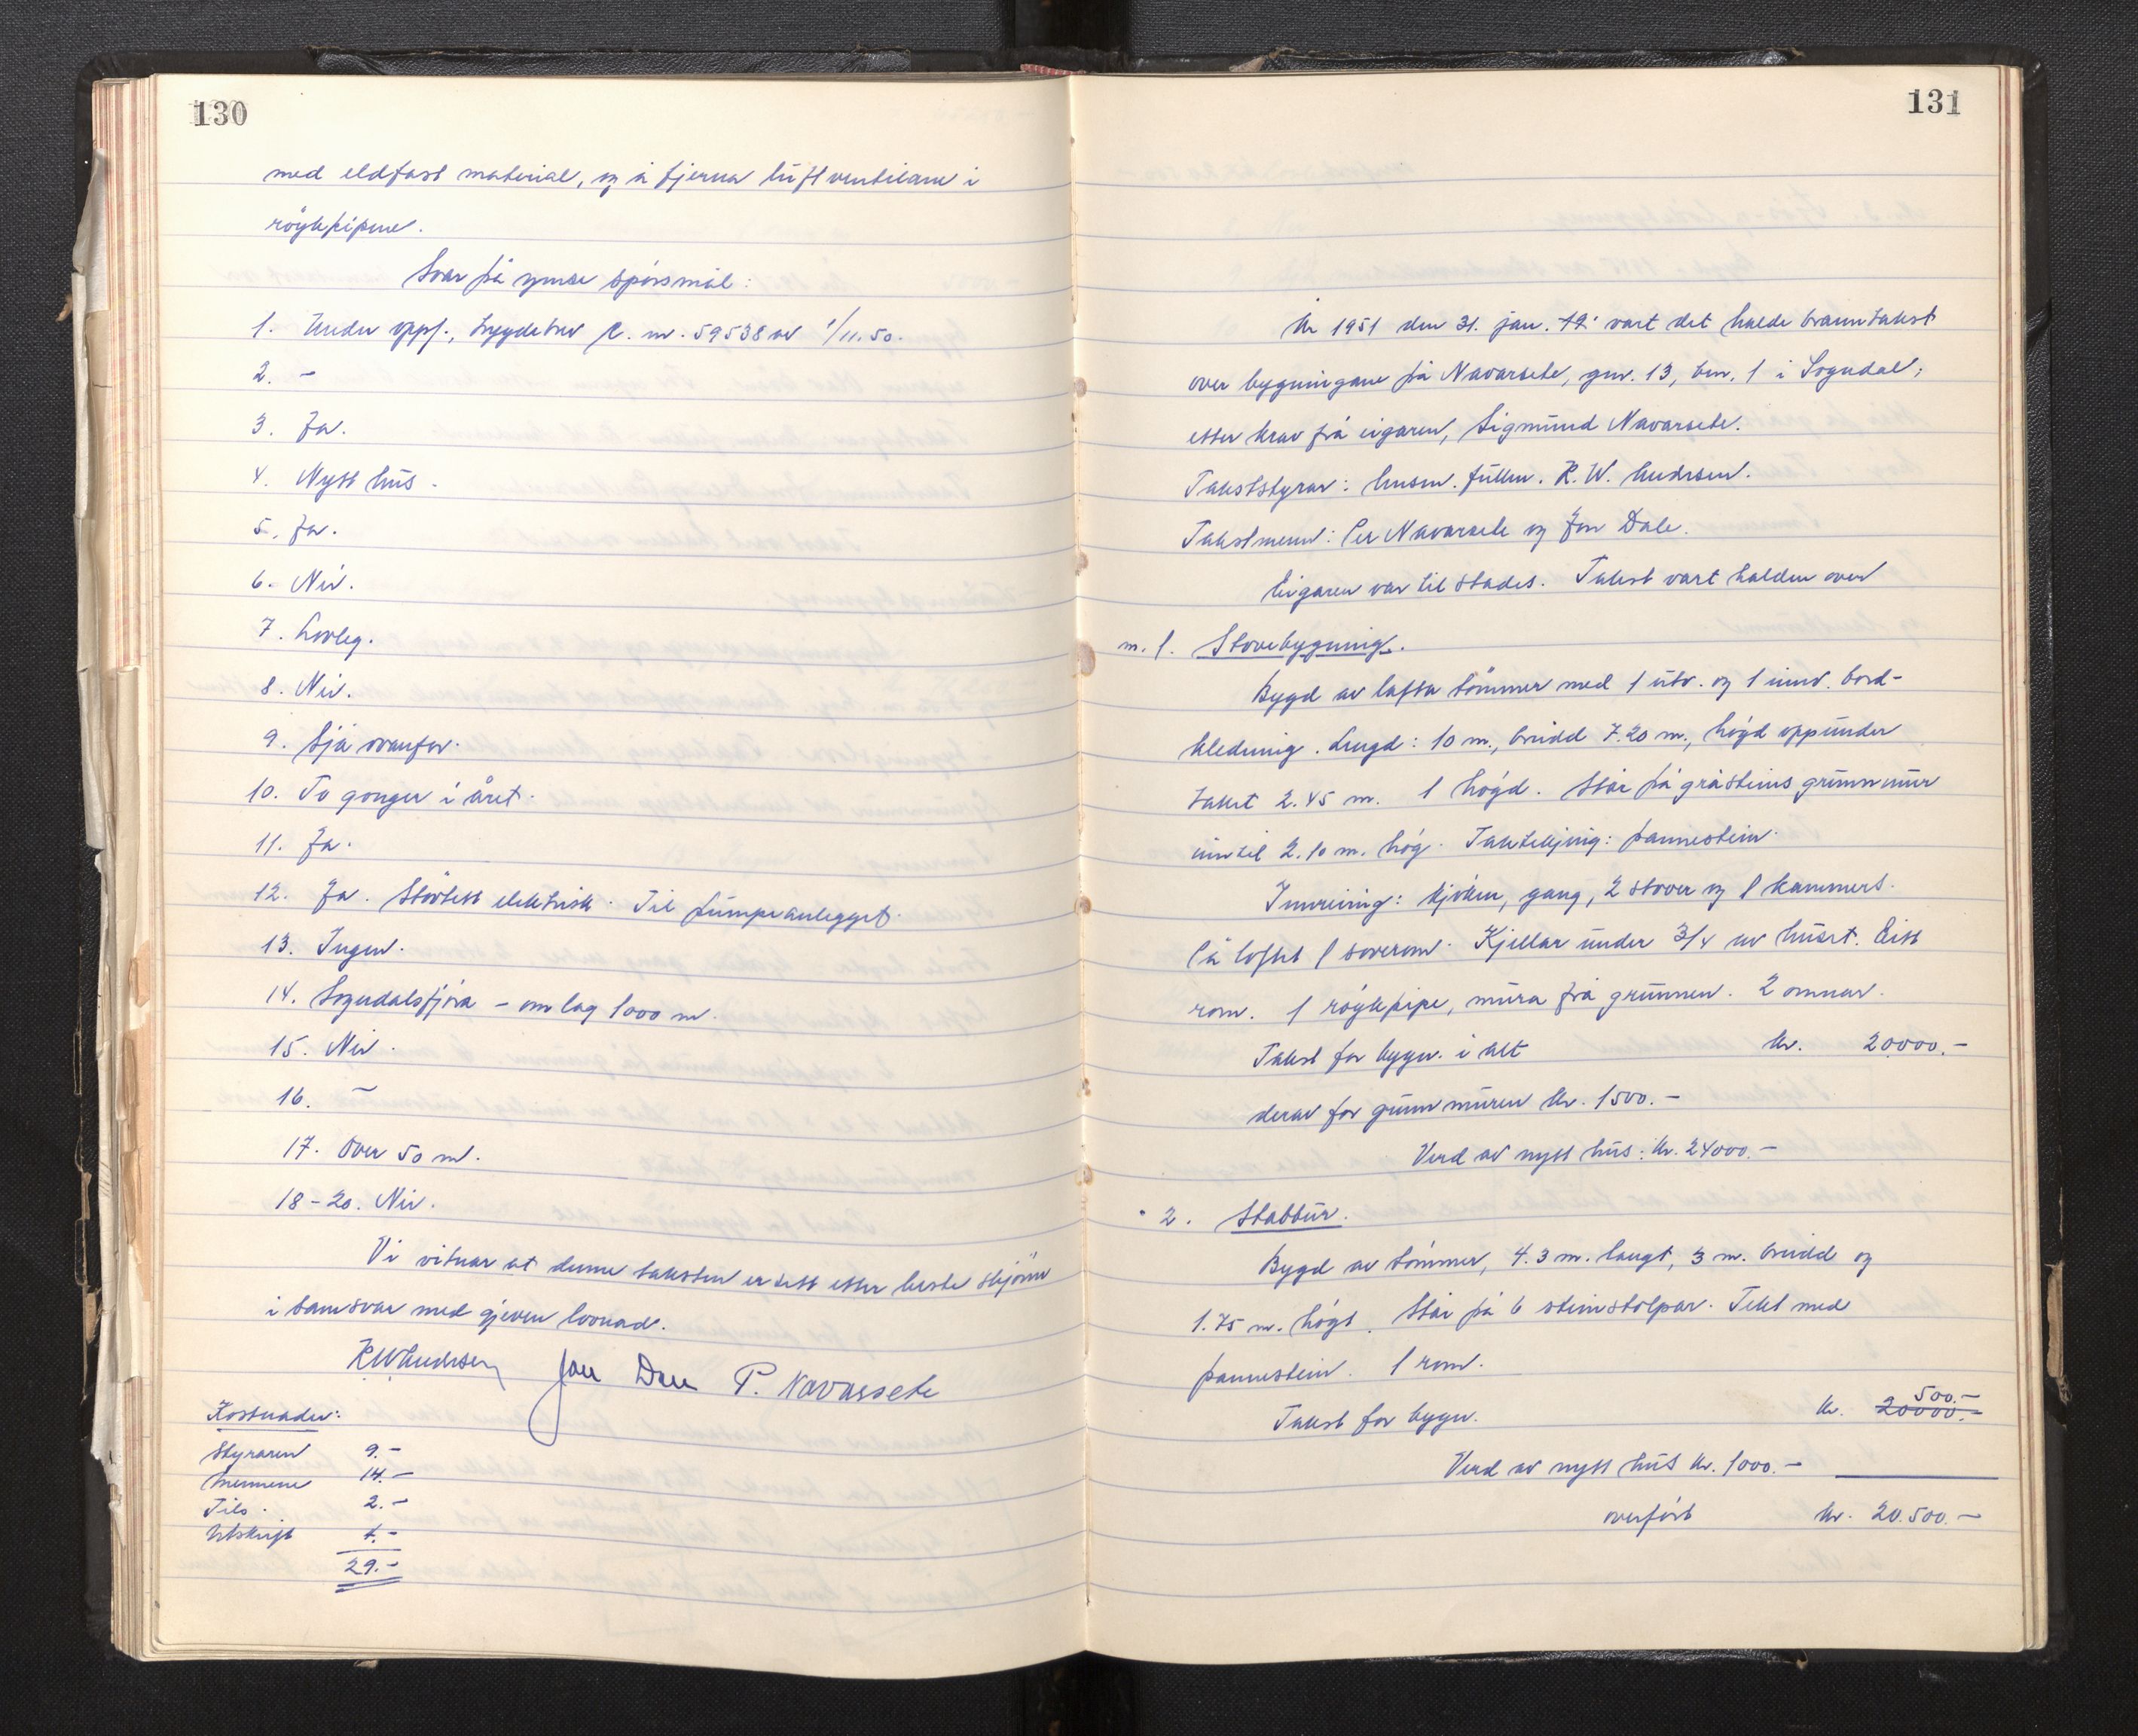 130
med eldfast material, og å fjerna luftventilane i
röykpipene.
Svar på ymse spörsmål:
1. Under oppf., byggebrev C. nr. 59538 av 1/11.50.
2. -
3. Ja.
4. Nytt hus.
5. Ja.
6. Nei.
7. Lovleg.
8. Nei.
9. Sjå ovanfor.
10. To gonger i året.
11. Ja.
12. Ja. Störtest elektrisk. Til pumpeanlegget.
13. Ingen.
14. Sogndalsfjöra - om lag 1000 m.
15. Nei.
16. -
17. Over 50 m.
18-20. Nei.
Vi vitnar at denne taksten er sett etter beste skjönn
i samsvar med gjeven lovnad.
R W Andersen Jon Dale P. Navarsete
Kostnader:
Styraren 9.-
Mennene 14.-
Tils. 2.-
Utskrift 4.-
29.-
131
År 1951 den 31. jan. vart det halde branntakst
over bygningane på Navarsete, gnr. 13, bnr. 1 i Sogndal,
etter krav frå eigaren, Sigmund Navarsete.
Takststyrar: lensm. fullm. R. W. Andersen.
Takstmenn: Per Navarsete og Jon Dale.
Eigaren var til stades. Takst vart halden over
nr. 1. Stovebygning.
Bygd av lafta tömmer med 1 utv. og 1 innv. bord-
kledning. Lengd: 10 m., breidd 7.20 m., högd oppunder
taket 2.45 m. 1 högd. Står på gråsteins grunnmur
inntil 2.10 m. høg. Taktekjing: pannestein.
Innreiing: kjöken, gang, 2 stover og 1 kammers.
På loftet 1 soverom. Kjellar under 3/4 av huset. Eitt
rom. 1 röykpipe, mura frå grunnen. 2 omnar.
Takst for bygn. i alt kr. 20000.-
derav for grunnmuren kr. 1500.-
Verd av nytt hus: kr. 24000.-
" 2. Stabbur.
Bygd av tömmer, 4.3 m. langt, 3 m. breidd og
1.75 m. högt. Står på 6 steinstolpar. Tekt med
pannestein. 1 rom.
500.-
Takst for bygn. kr. 20000.-
Verd av nytt hus kr. 1000.-
overfört kr. 20.500.-